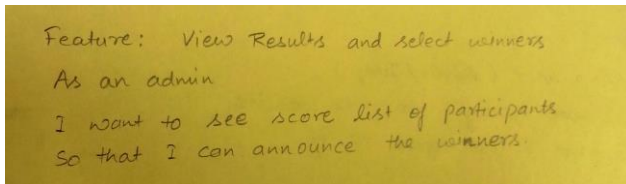 Feature: View Results and select winners
As an admin
I want to see score list of participants
So that I can announce the winners.